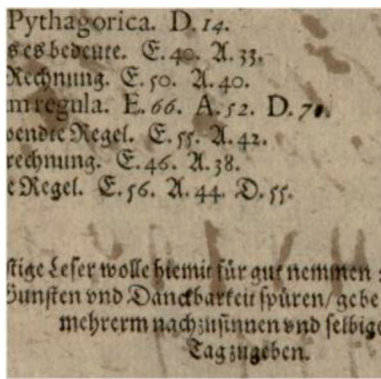 Pythagorica. D. 14.
s es bedeute. E. 40. A. 33.
Rechnung. E. 50. A. 40.
regula. E. 66. A. 52. D. 70.
Regel. E. 55. A. 42.
rechnung. E. 46. A. 38.
e Regel. E. 56. A. 44. D. 55.
stige Leser wolle hiemit für gut nemmen :
Gunsten vnd Danckbarkeit spüren/ gebe
mehrerm nachzusinnen vnd selbige
Tag zugeben.